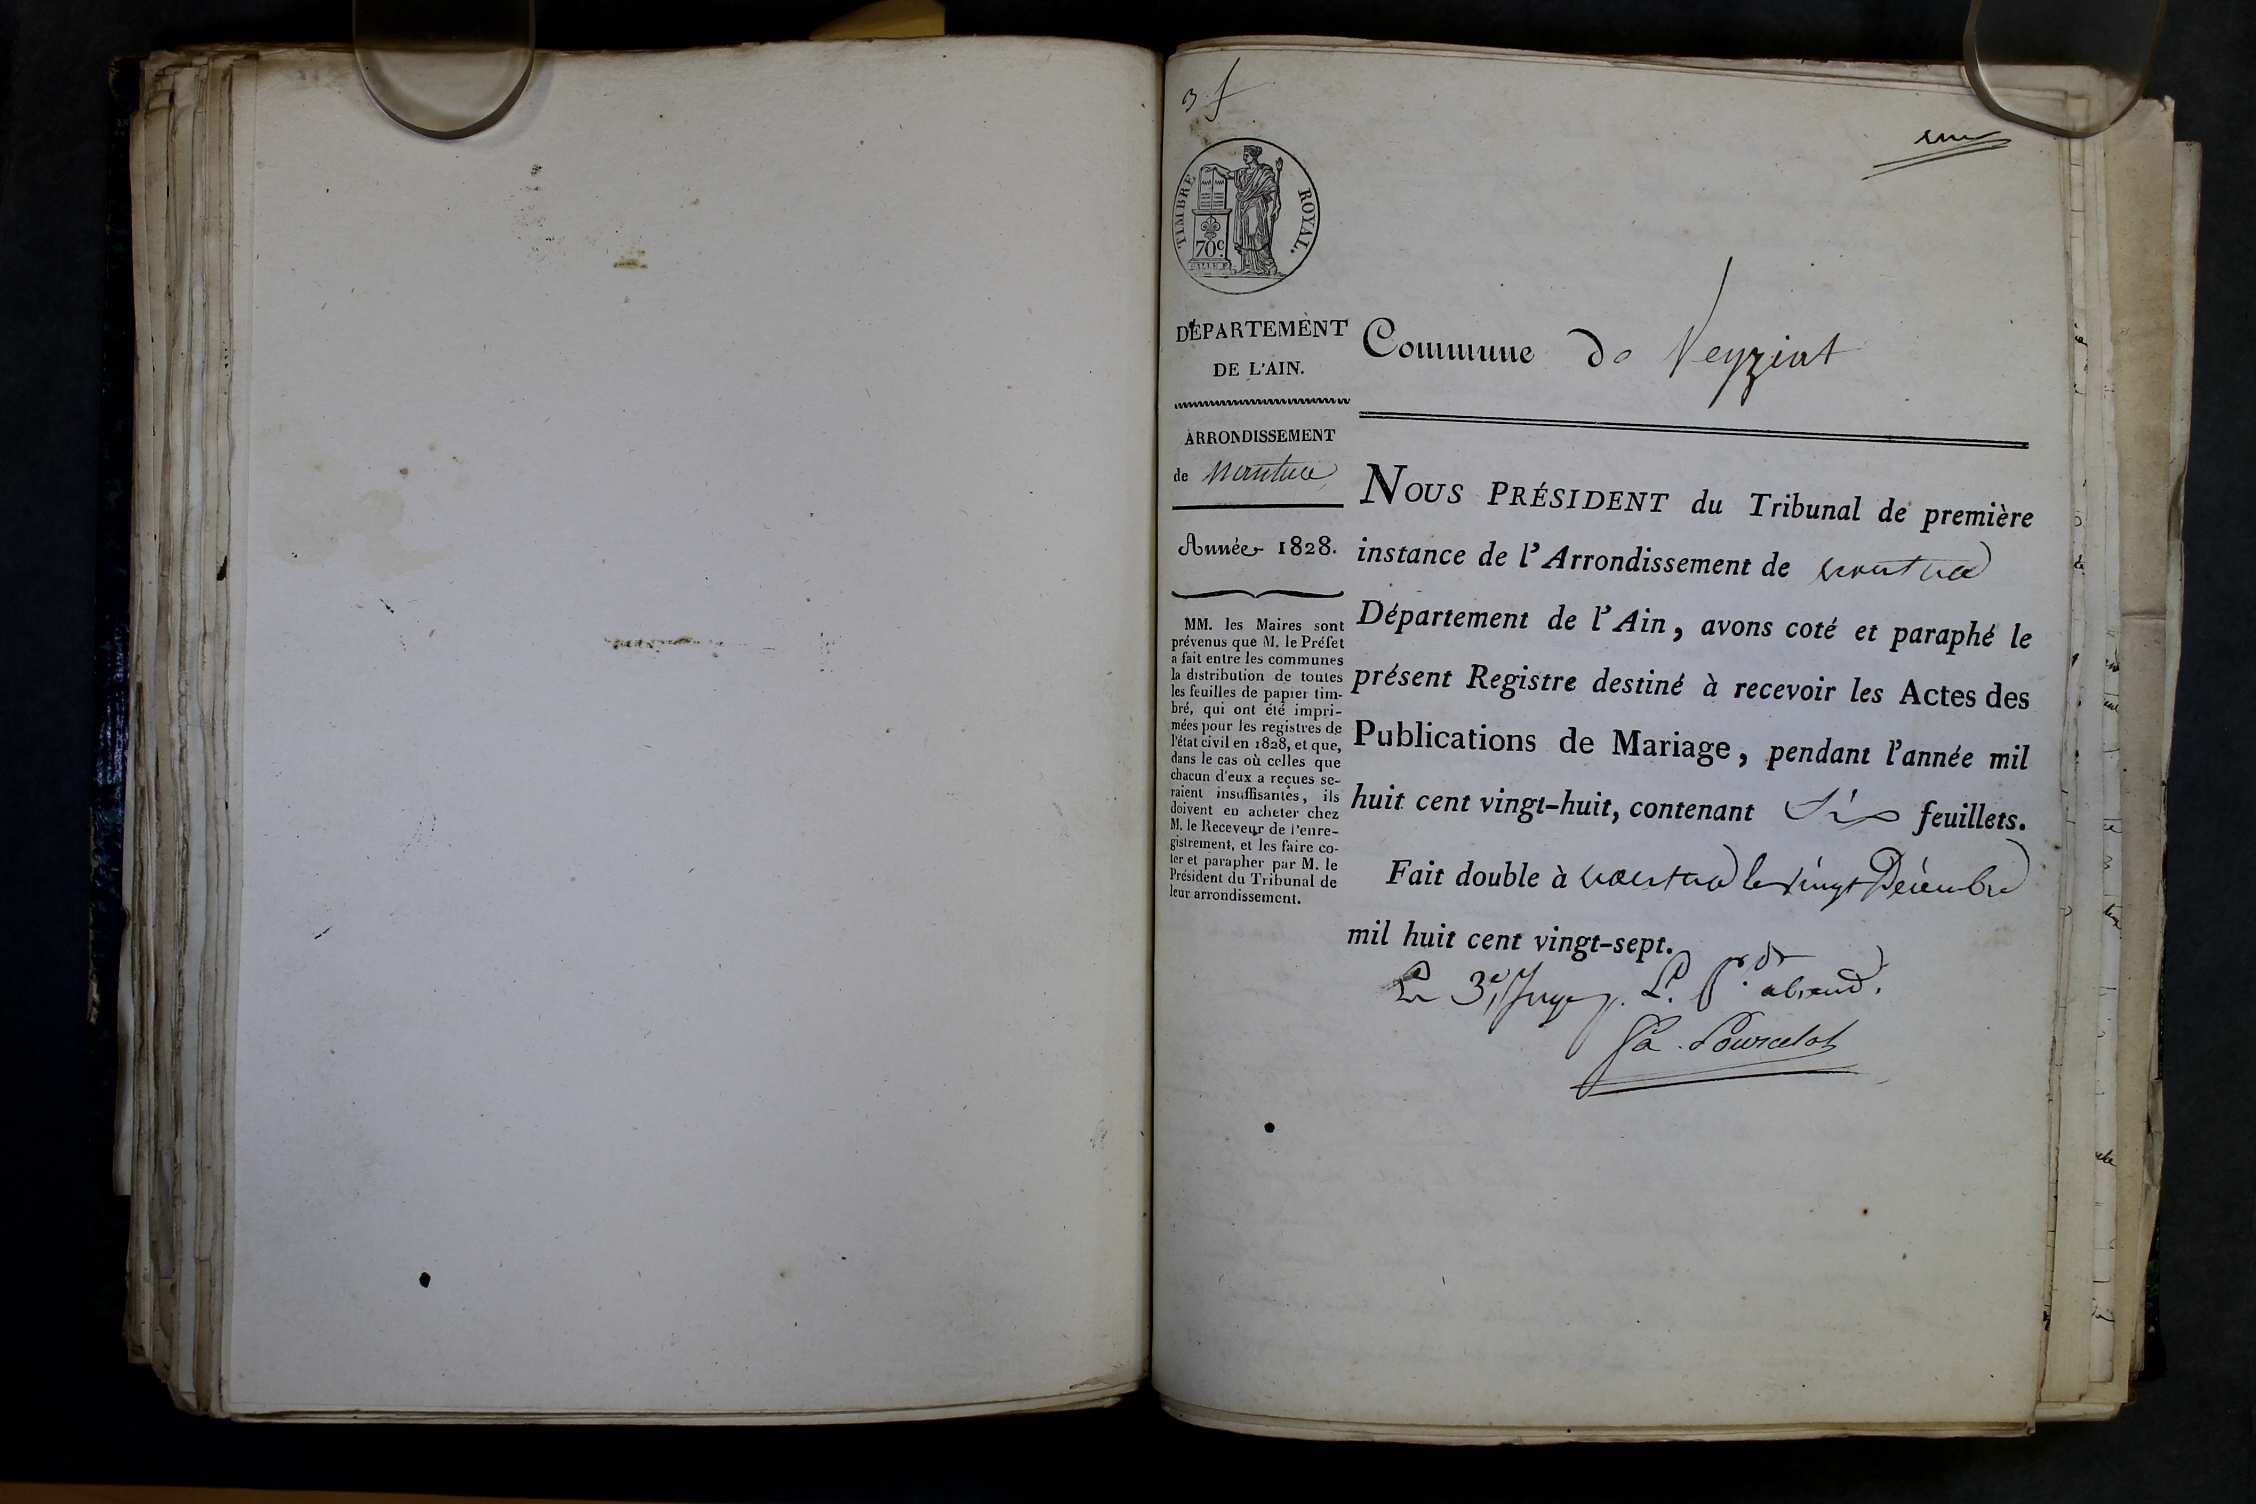 3 f
TIMBRE ROYAL.
70c.
DÉPARTEMENT
DE L'AIN.
ARRONDISSEMENT
de Nantua
Année 1828.
MM. les Maires sont
prévenus que M. le Préfet
a fait entre les communes
la distribution de toutes
les feuilles de papier tim-
bré, qui ont été impri-
mées pour les registres de
l'état civil en 1828, et que,
dans le cas où celles que
chacun d'eux a reçues se-
raient insuffisantes, ils
doivent en acheter chez
M. le Receveur de l'enre-
gistrement, et les faire co-
ter et parapher par M. le
Président du Tribunal de
leur arrondissement.
Commune de Veyziat
NOUS PRÉSIDENT du Tribunal de première
instance de l'Arrondissement de nantua
Département de l'Ain, avons coté et paraphé le
présent Registre destiné à recevoir les Actes des
Publications de Mariage, pendant l'année mil
huit cent vingt-huit, contenant Six feuillets.
Fait double à nantua le vingt Décembre
mil huit cent vingt-sept.
Le 3e Juge p. L. Pr dt absend.
Pourcelot